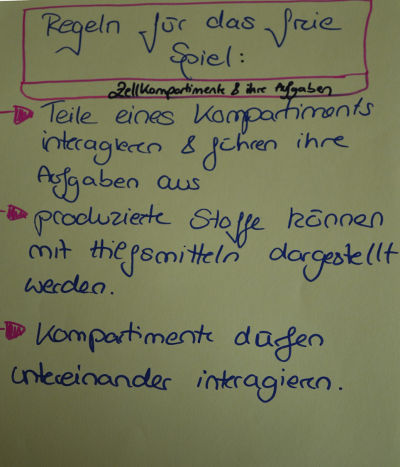 Regeln für das freie
Spiel:
Zellkompartimente & ihre Aufgaben
Teile eines Kompartiments
interagieren & führen ihre
Aufgaben aus
produzierte Stoffe können
mit Hilfsmitteln dargestellt
werden.
Kompartimente dürfen
untereinander interagieren.